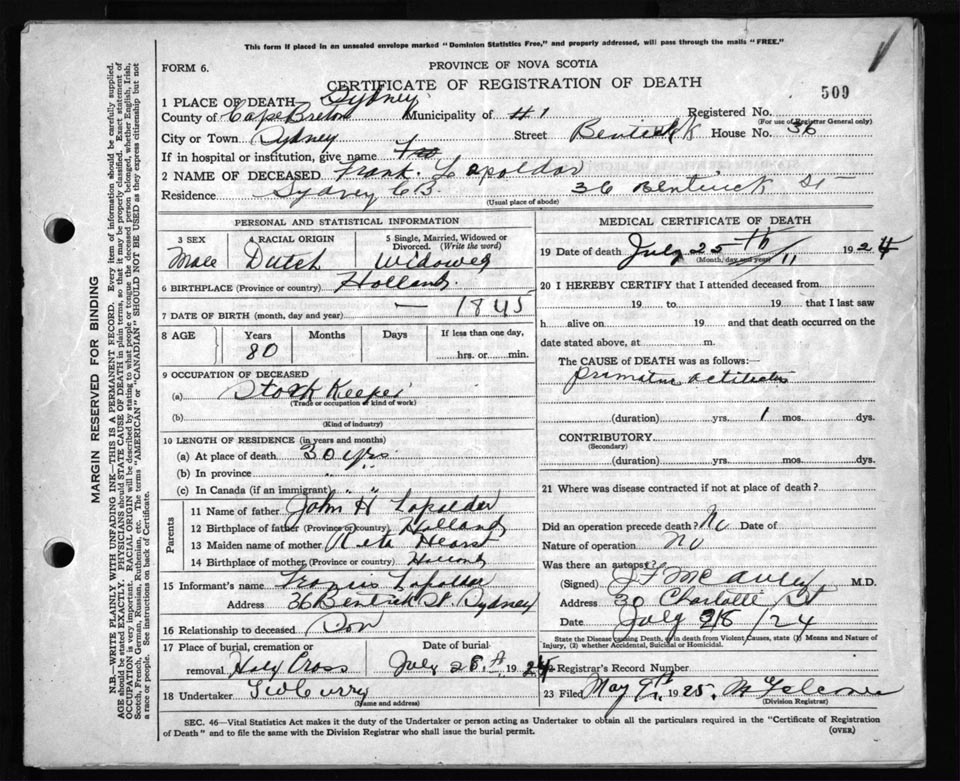 This form if placed in an unsealed envelope marked "Dominion Statistics Free," and properly addressed, will pass through the mails "FREE."
FORM 6.
PROVINCE OF NOVA SCOTIA
CERTIFICATE OF REGISTRATION OF DEATH
509
1 PLACE OF DEATH Sydney
County of Cape Breton Municipality of #1 Registered No.
(For use of Registrar General only)
City or Town Sydney Street House No. 36
If in hospital or institution, give name
2 NAME OF DECEASED Frank Lapoldar
Residence Sydney C.B. 36 Bentinck St
(Usual place of abode)
PERSONAL AND STATISTICAL INFORMATION
3 SEX Male
4 RACIAL ORIGIN Dutch
5 Single, Married, Widowed or Divorced. (Write the word) Widowed
6 BIRTHPLACE (Province or country) Holland.
7 DATE OF BIRTH (month, day and year) — 1845
8 AGE Years 80 Months Days If less than one day, hrs. or min.
9 OCCUPATION OF DECEASED
(a) Keeper
(Trade or occupation or kind of work)
(b)
(Kind of industry)
10 LENGTH OF RESIDENCE (in years and months)
(a) At place of death 30 yrs
(b) In province " "
(c) In Canada (if an immigrant) " "
Parents
11 Name of father John H Lapolder
12 Birthplace of father (Province or country) Holland
13 Maiden name of mother Reta Hearst
14 Birthplace of mother (Province or country) Holland
15 Informant's name Francis Lapolder
Address 36 St. Sydney
16 Relationship to deceased Son
17 Place of burial, cremation or removal Holy Cross
Date of burial July 28 1924
18 Undertaker Curry
(Name and address)
MEDICAL CERTIFICATE OF DEATH
19 Date of death July 25 th 11 1924
(Month, day and year)
20 I HEREBY CERTIFY that I attended deceased from
19 to 19 that I last saw
h alive on 19 and that death occurred on the
date stated above, at m.
The CAUSE of DEATH was as follows:—
(duration) yrs. 1 mos. dys.
CONTRIBUTORY
(Secondary)
(duration) yrs. mos. dys.
21 Where was disease contracted if not at place of death?
Did an operation precede death? No Date of
Nature of operation No
Was there an autopsy?
(Signed) M.D.
Address 30 Charlotte St
Date July 28/24
State the Disease causing Death, or in death from Violent Causes, state (1) Means and Nature of Injury, (2) whether Accidental, Suicidal or Homicidal.
22 Registrar's Record Number
23 Filed May 9th 1925.
(Division Registrar)
SEC. 46—Vital Statistics Act makes it the duty of the Undertaker or person acting as Undertaker to obtain all the particulars required in the "Certificate of Registration of Death" and to file the same with the Division Registrar who shall issue the burial permit.
(OVER)
MARGIN RESERVED FOR BINDING
N.B.—WRITE PLAINLY WITH UNFADING INK—THIS IS A PERMANENT RECORD. Every item of information should be carefully supplied.
AGE should be stated EXACTLY. PHYSICIANS should STATE CAUSE OF DEATH in plain terms, so that it may be properly classified. Exact statement of
OCCUPATION is very important. RACIAL ORIGIN will be described by stating to what people or tongue the deceased person belonged, whether English, Irish,
Scotch, French, German, Russian, Ruthenian, etc. The terms "AMERICAN" or "CANADIAN" SHOULD NOT BE USED as they express citizenship but not
a race or people. See instructions on back of Certificate.